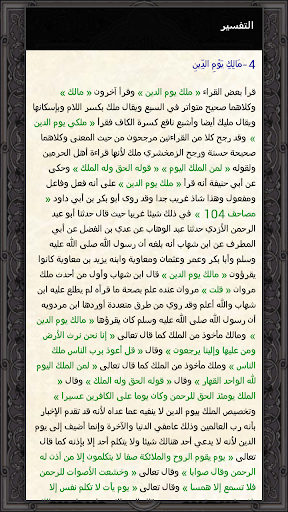 التفسير
4-مَالِكِ يَوْمِ الدِّينِ
قرأ بعض القراء « ملك يوم الدين » وقرأ آخرون « مالك »
وكلاهما صحيح متواتر في السبع ويقال ملك بكسر اللام وبإسكانها
ويقال مليك أيضا وأشبع نافع كسرة الكاف فقرأ « ملكي يوم الدين
» وقد رجح كلا من القراءتين مرجحون من حيث المعنى وكلاهما
صحيحة حسنة ورجح الزمخشري ملك لأنها قراءة أهل الحرمين
ولقوله « لمن الملك اليوم » « قوله الحق وله الملك » وحكى
عن أبي حنيفة أنه قرأ « ملك يوم الدين » على أنه فعل وفاعل
ومفعول وهذا شاذ غريب جدا وقد روى أبو بكر بن أبي داود «
مصاحف 104 » في ذلك شيئا غريبا حيث قال حدثنا أبو عبد
الرحمن الأزدي حدثنا عبد الوهاب عن عدي بن الفضل عن أبي
المطرف عن ابن شهاب أنه بلغه أن رسول الله صلى الله عليه
وسلم وأبا بكر وعمر وعثمان ومعاوية وابنه يزيد بن معاوية كانوا
يقرؤون « مالك يوم الدين » قال ابن شهاب وأول من أحدث ملك
مروان « قلت » مروان عنده علم بصحة ما قرأه لم يطلع عليه ابن
شهاب والله أعلم وقد روي من طرق متعددة أوردها ابن مردويه
أن رسول الله صلى الله عليه وسلم كان يقرؤها « مالك يوم الدين
» ومالك مأخوذ من الملك كما قال تعالى « إنا نحن نرث الأرض
ومن عليها وإلينا يرجعون » وقال « قل أعوذ برب الناس ملك
الناس » وملك مأخوذ من الملك كما قال تعالى « لمن الملك اليوم
لله الواحد القهار » وقال « قوله الحق وله الملك » وقال «
الملك يومئذ الحق للرحمن وكان يوما على الكافرين عسيرا »
وتخصيص الملك بيوم الدين لا ينفيه عما عداه لأنه قد تقدم الإخبار
بأنه رب العالمين وذلك عامفي الدنيا والآخرة وإنما أضيف إلى يوم
الدين لأنه لا يدعى أحد هنالك شيئا ولا يتكلم أحد إلا بإذنه كما قال
تعالى « يوم يقوم الروح والملائكة صفا لا يتكلمون إلا من أذن له
الرحمن وقال صوابا » وقال تعالى « وخشعت الأصوات للرحمن
فلا تسمع إلا همسا » وقال تعالى « يوم يأت لا تكلم نفس إلا